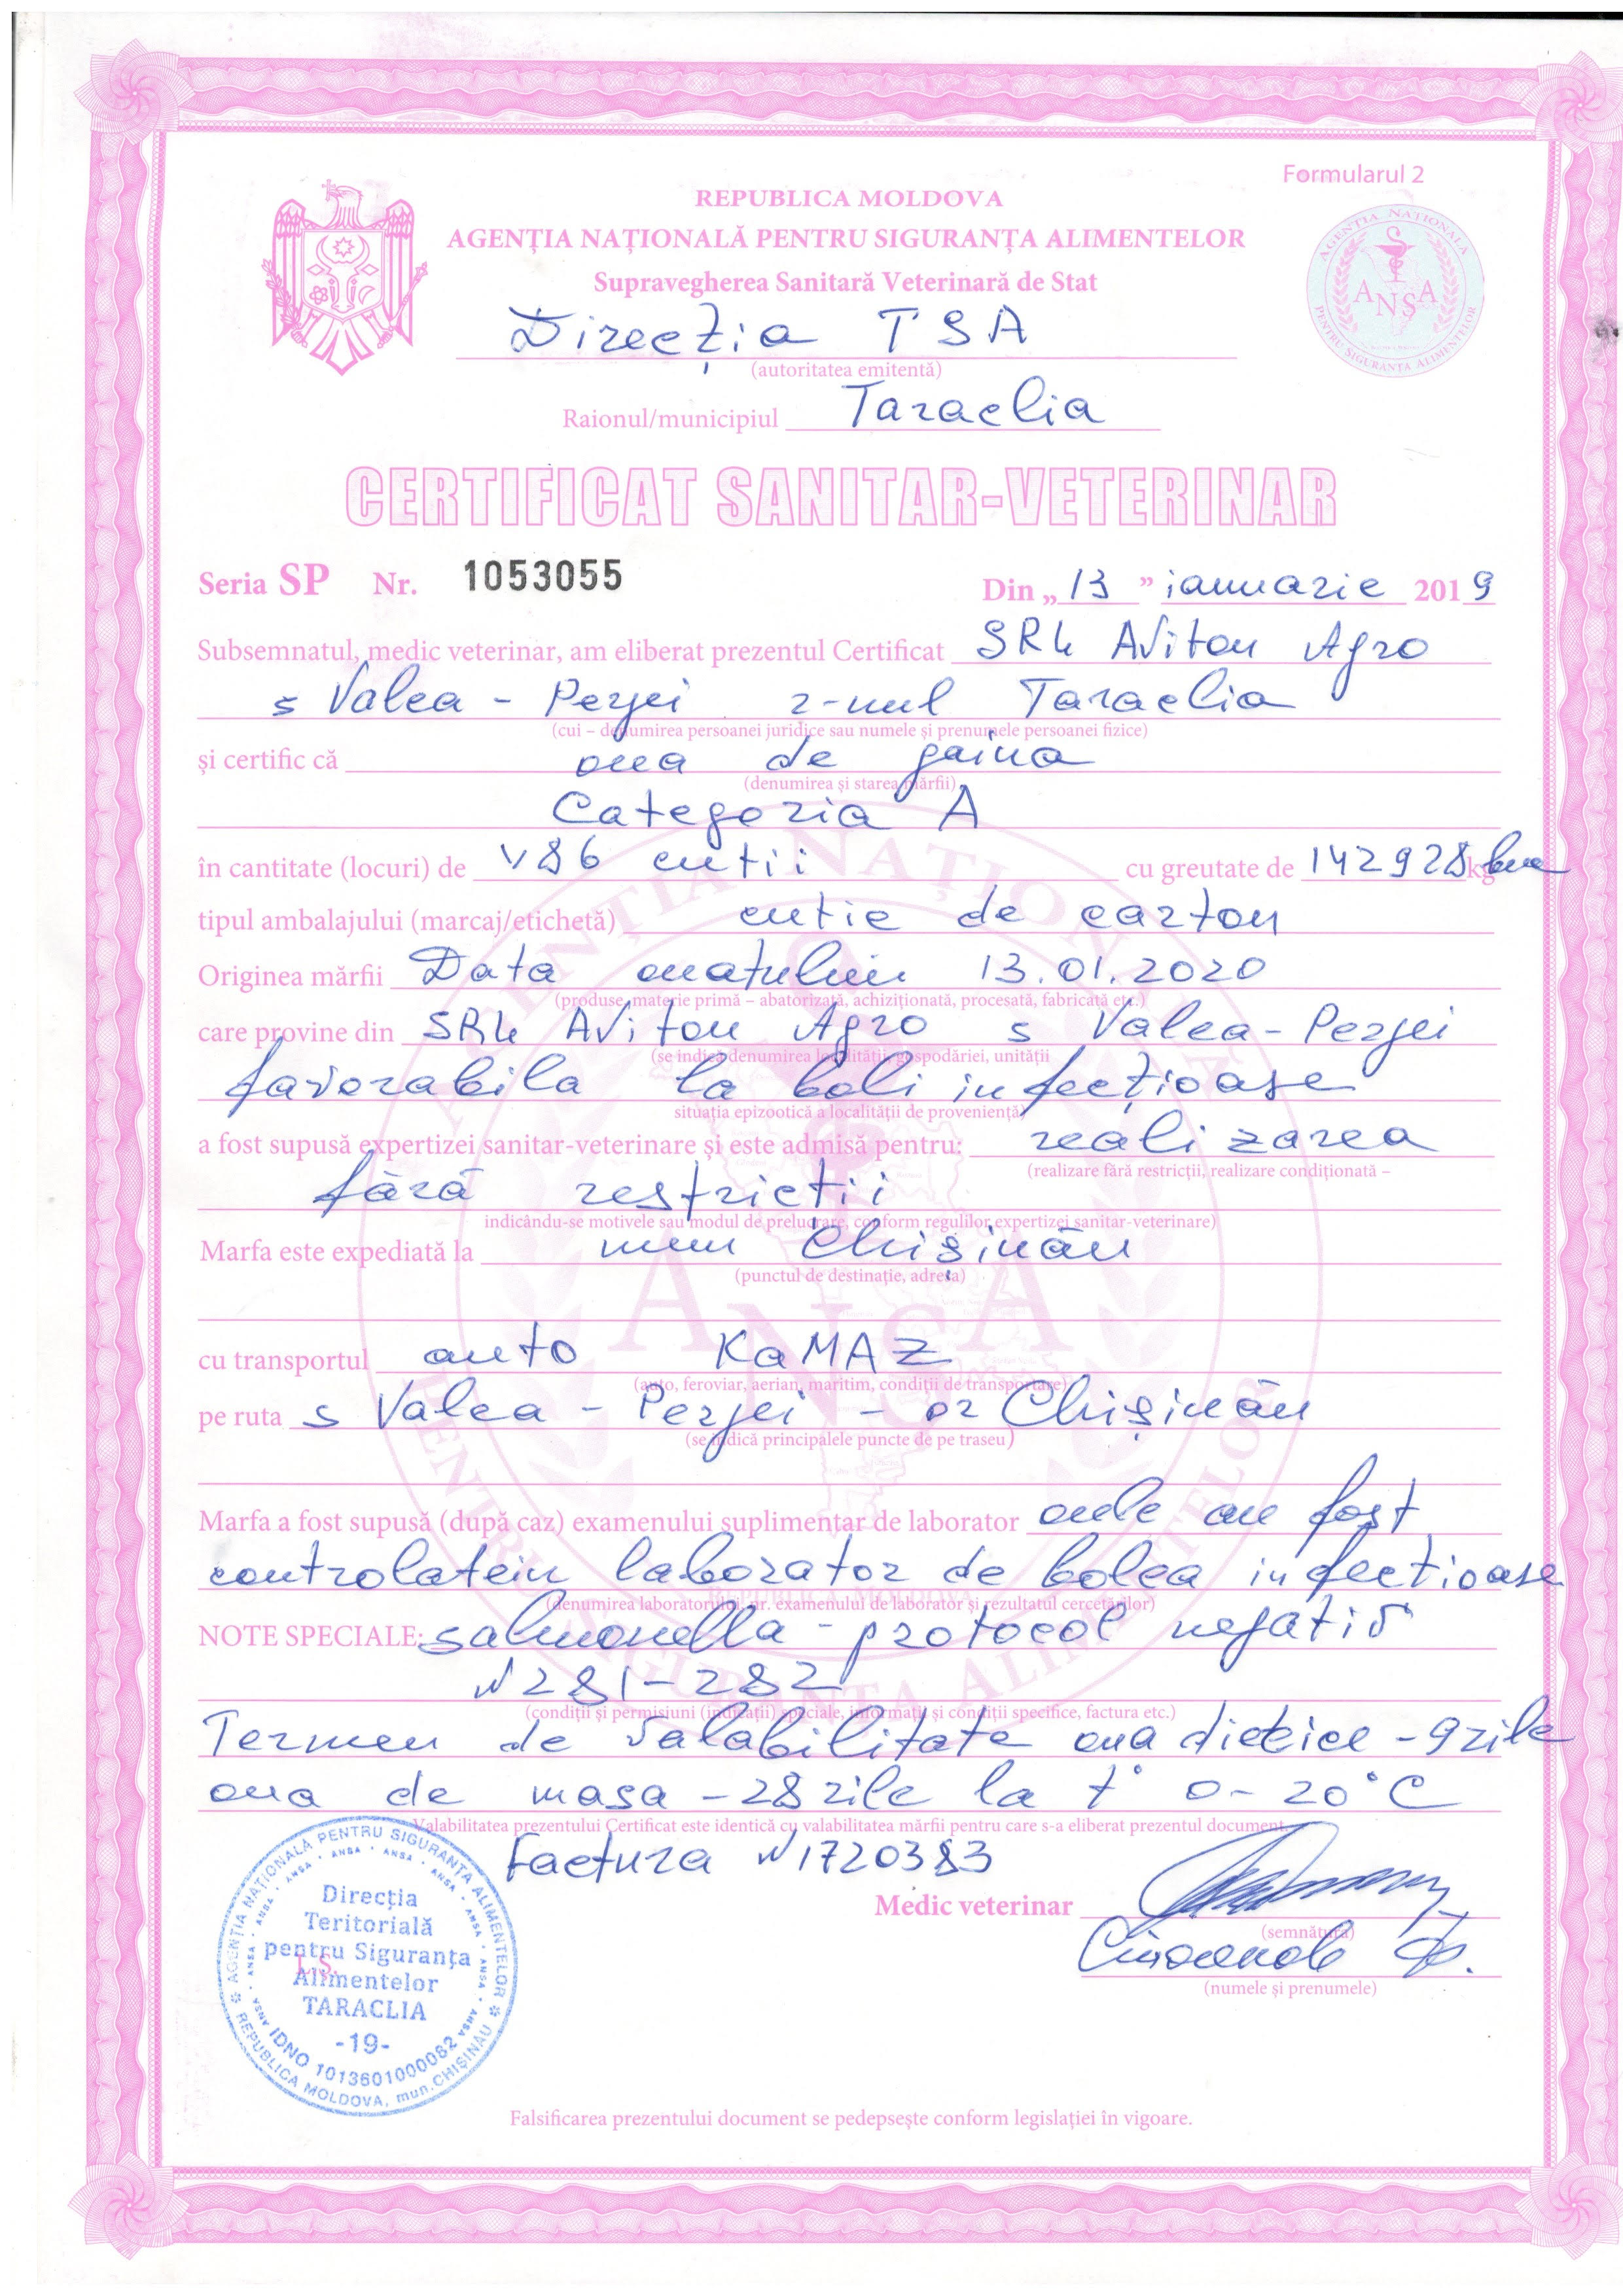 Formularul 2
REPUBLICA MOLDOVA
AGENȚIA NAȚIONALĂ PENTRU SIGURANȚA ALIMENTELOR
Supravegherea Sanitară Veterinară de Stat
Direcția TSA
(autoritatea emitentă)
Raionul/municipiul Taraclia
AGENȚIA NAȚIONALĂ PENTRU SIGURANȚA ALIMENTELOR
ANSA
CERTIFICAT SANITAR-VETERINAR
Seria SP Nr. 1053055 Din „13” ianuarie 2019
Subsemnatul, medic veterinar, am eliberat prezentul Certificat SRL Aviton Agro
s Valea-Perjei r-nul Taraclia
(cui – denumirea persoanei juridice sau numele și prenumele persoanei fizice)
și certific că oua de gaina
(denumirea și starea mărfii)
Categoria A
în cantitate (locuri) de 86 cutii cu greutate de 142928 buc kg
tipul ambalajului (marcaj/etichetă) cutie de carton
Originea mărfii Data ouatului 13.01.2020
(produse, materie primă – abatorizată, achiziționată, procesată, fabricată etc.)
care provine din SRL Aviton Agro s Valea-Perjei
(se indică denumirea localității, gospodăriei, unității
favorabila la boli infecțioase
situația epizootică a localității de proveniență)
a fost supusă expertizei sanitar-veterinare și este admisă pentru: realizarea
(realizare fără restricții, realizare condiționată –
fără restrictii
indicându-se motivele sau modul de prelucrare, conform regulilor expertizei sanitar-veterinare)
Marfa este expediată la mun Chișinău
(punctul de destinație, adresa)
cu transportul auto KaMAZ
(auto, feroviar, aerian, maritim, condiții de transportare)
pe ruta s Valea-Perjei - or Chișinău
(se indică principalele puncte de pe traseu)
Marfa a fost supusă (după caz) examenului suplimentar de laborator ouăle au fost
controlate in laborator de bolea infectioase
(denumirea laboratorului, nr. examenului de laborator și rezultatul cercetărilor)
NOTE SPECIALE: salmonella - protocol negativ
N 281-282
(condiții și permisiuni (indicații) speciale, informații și condiții specifice, factura etc.)
Termen de valabilitate oua dietice - 9 zile
oua de masa - 28 zile la t° 0-20°C
Valabilitatea prezentului Certificat este identică cu valabilitatea mărfii pentru care s-a eliberat prezentul document.
Factura N 1720383
Medic veterinar
(semnătura)
(numele și prenumele)
L.Ș.
AGENȚIA NAȚIONALĂ PENTRU SIGURANȚA ALIMENTELOR
Direcția
Teritorială
pentru Siguranța
Alimentelor
TARACLIA
-19-
IDNO 1013601000062
REPUBLICA MOLDOVA, mun. CHIȘINĂU
Falsificarea prezentului document se pedepsește conform legislației în vigoare.